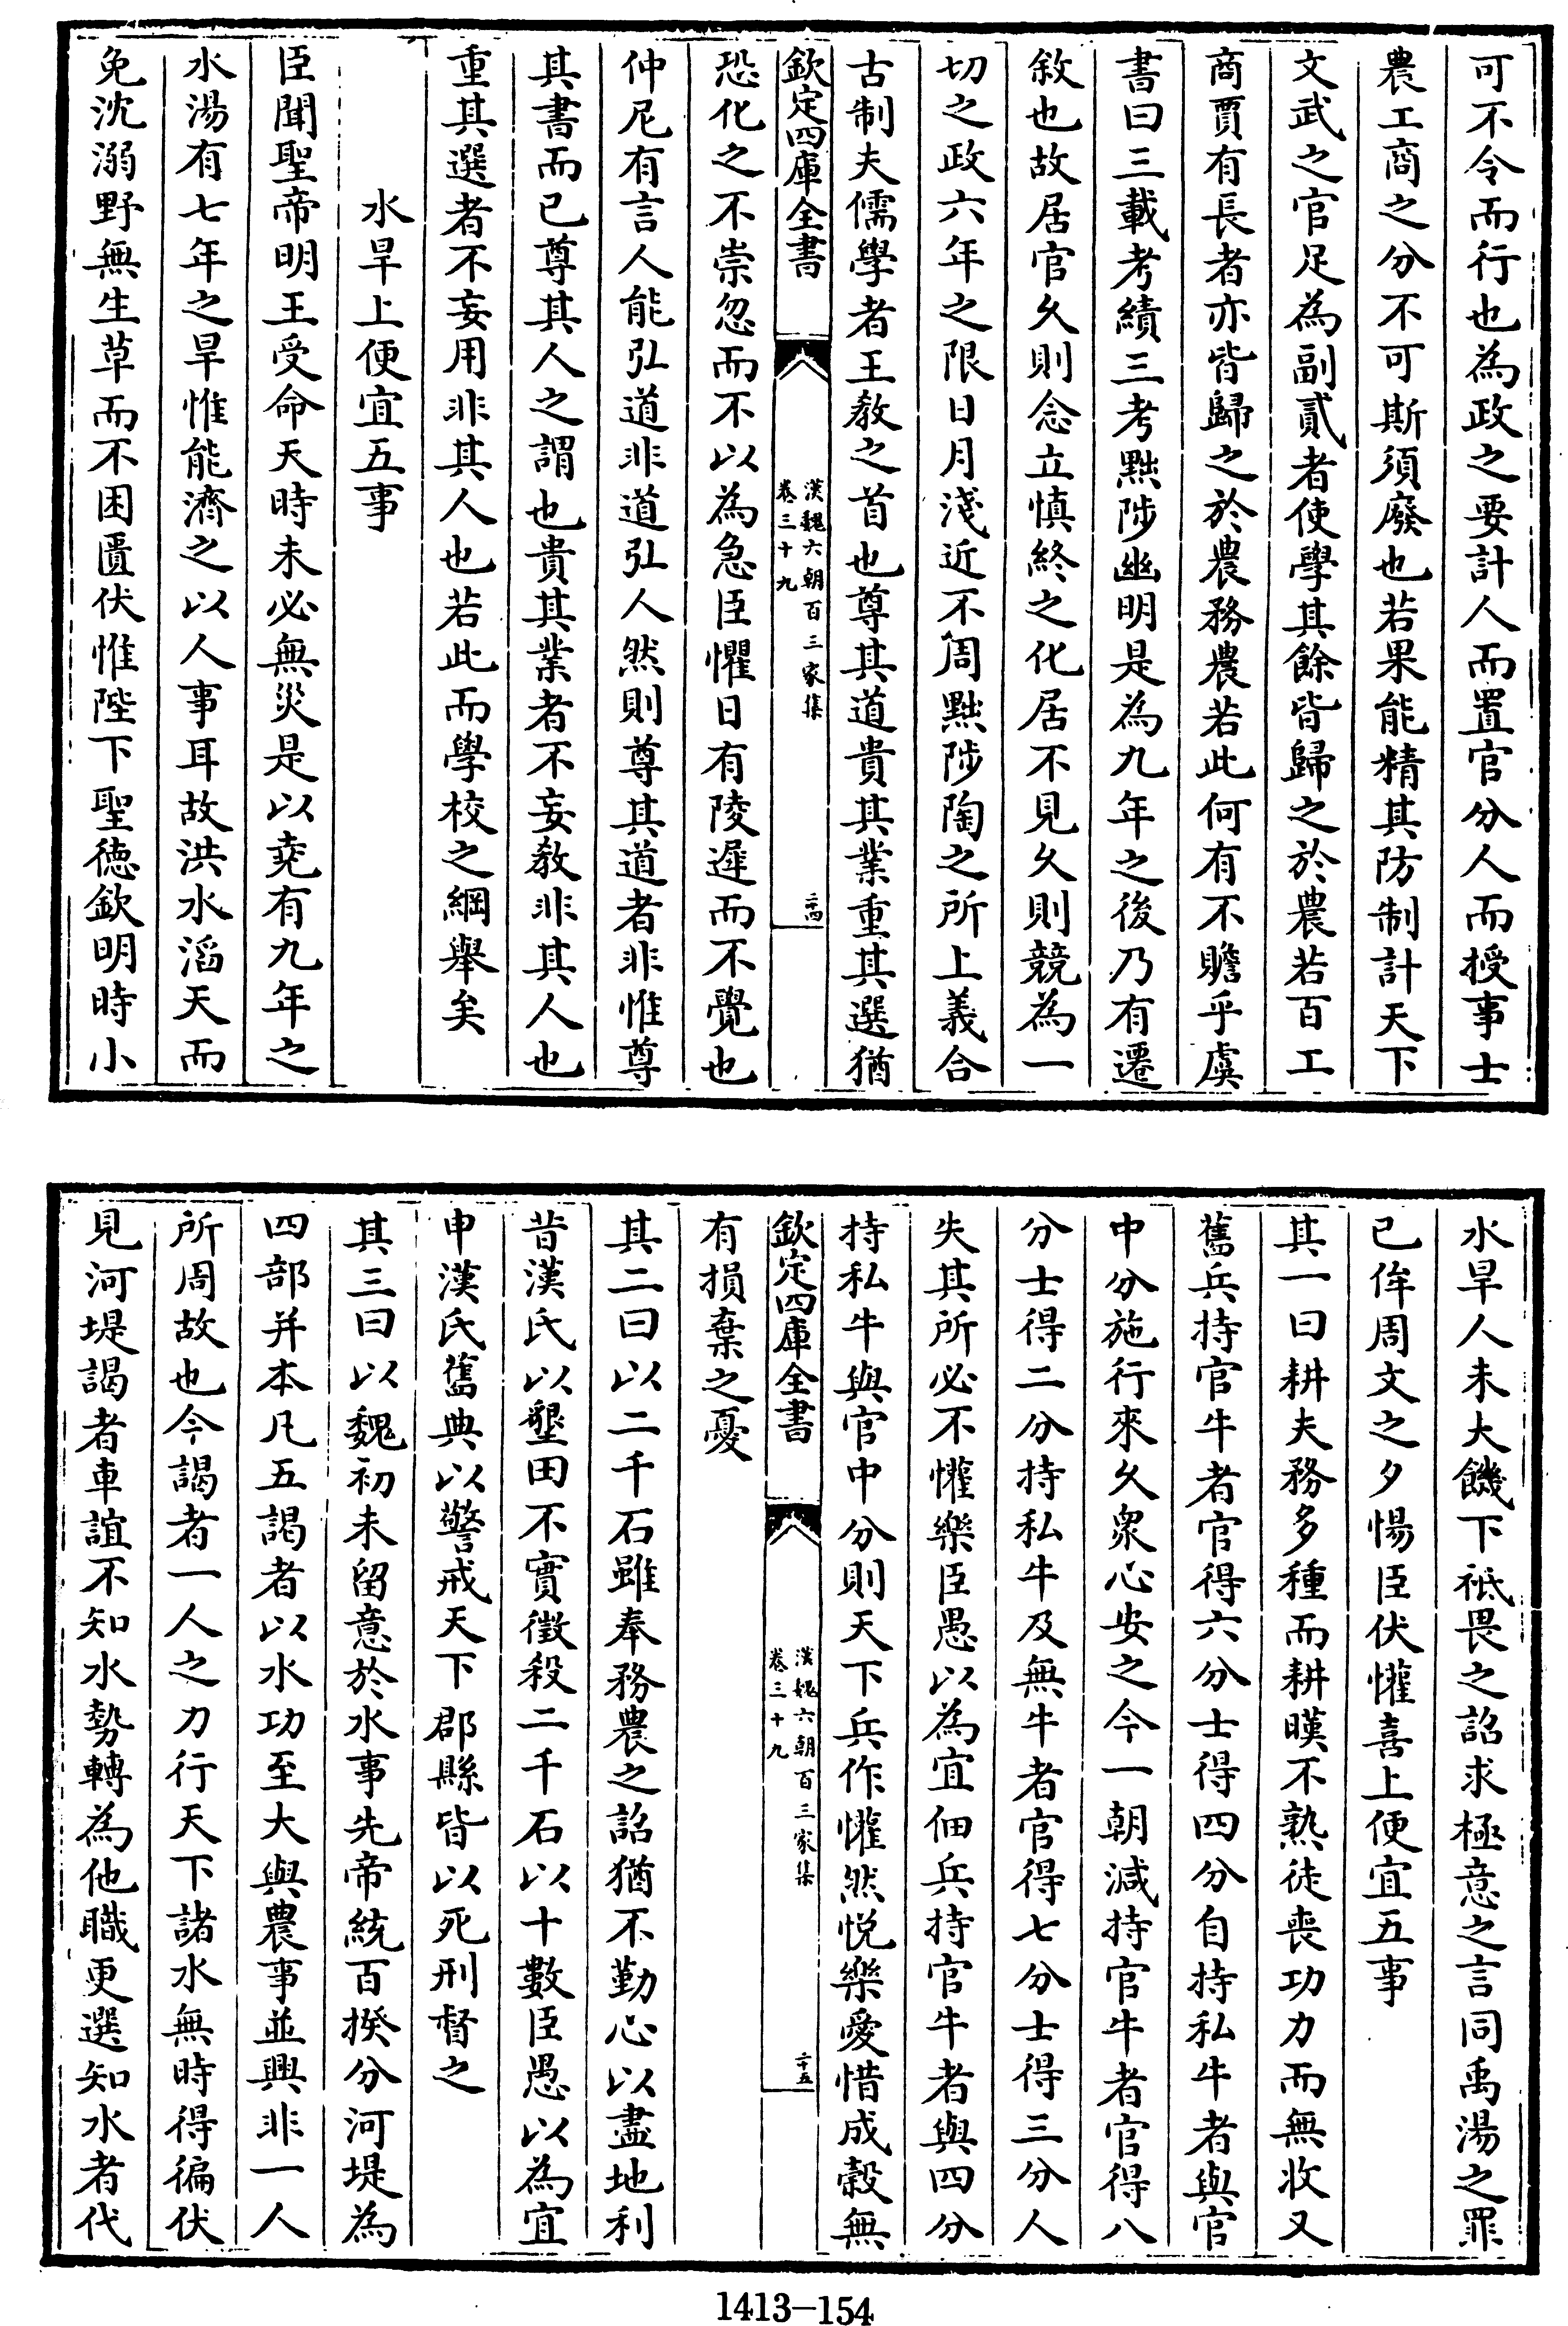 可不令而行也為政之要計人而置官分人而授事士
農工商之分不可斯須廢也若果能精其防制計天下
文武之官足為副貳者使學其餘皆歸之於農若百工
商賈有長者亦皆歸之於農務農若此何有不贍乎虞
書曰三載考績三考黜陟幽明是為九年之後乃有遷
敘也故居官久則念立慎終之化居不見久則競為一
切之政六年之限日月淺近不周黜陟陶之所上義合
古制夫儒學者王教之首也尊其道貴其業重其選猶
欽定四庫全書
漢魏六朝百三家集
卷三十九
二十四
恐化之不崇忽而不以為急臣懼日有陵遲而不覺也
仲尼有言人能弘道非道弘人然則尊其道者非惟尊
其書而已尊其人之謂也貴其業者不妄教非其人也
重其選者不妄用非其人也若此而學校之綱舉矣
水旱上便宜五事
臣聞聖帝明王受命天時未必無災是以堯有九年之
水湯有七年之旱惟能濟之以人事耳故洪水滔天而
免沈溺野無生草而不困匱伏惟陛下聖德欽明時小
水旱人未大饑下祗畏之詔求極意之言同禹湯之罪
已侔周文之夕惕臣伏懽喜上便宜五事
其一曰耕夫務多種而耕暵不熟徒喪功力而無收又
舊兵持官牛者官得六分士得四分自持私牛者與官
中分施行來久衆心安之今一朝減持官牛者官得八
分士得二分持私牛及無牛者官得七分士得三分人
失其所必不懽樂臣愚以為宜佃兵持官牛者與四分
持私牛與官中分則天下兵作懽然悅樂愛惜成穀無
欽定四庫全書
漢魏六朝百三家集
卷三十九
二十五
有損棄之憂
其二曰以二千石雖奉務農之詔猶不勤心以盡地利
昔漢氏以墾田不實徵殺二千石以十數臣愚以為宜
申漢氏舊典以警戒天下郡縣皆以死刑督之
其三曰以魏初未留意於水事先帝統百揆分河堤為
四部并本凡五謁者以水功至大與農事並興非一人
所周故也今謁者一人之力行天下諸水無時得徧伏
見河堤謁者車誼不知水勢轉為他職更選知水者代
1413-154